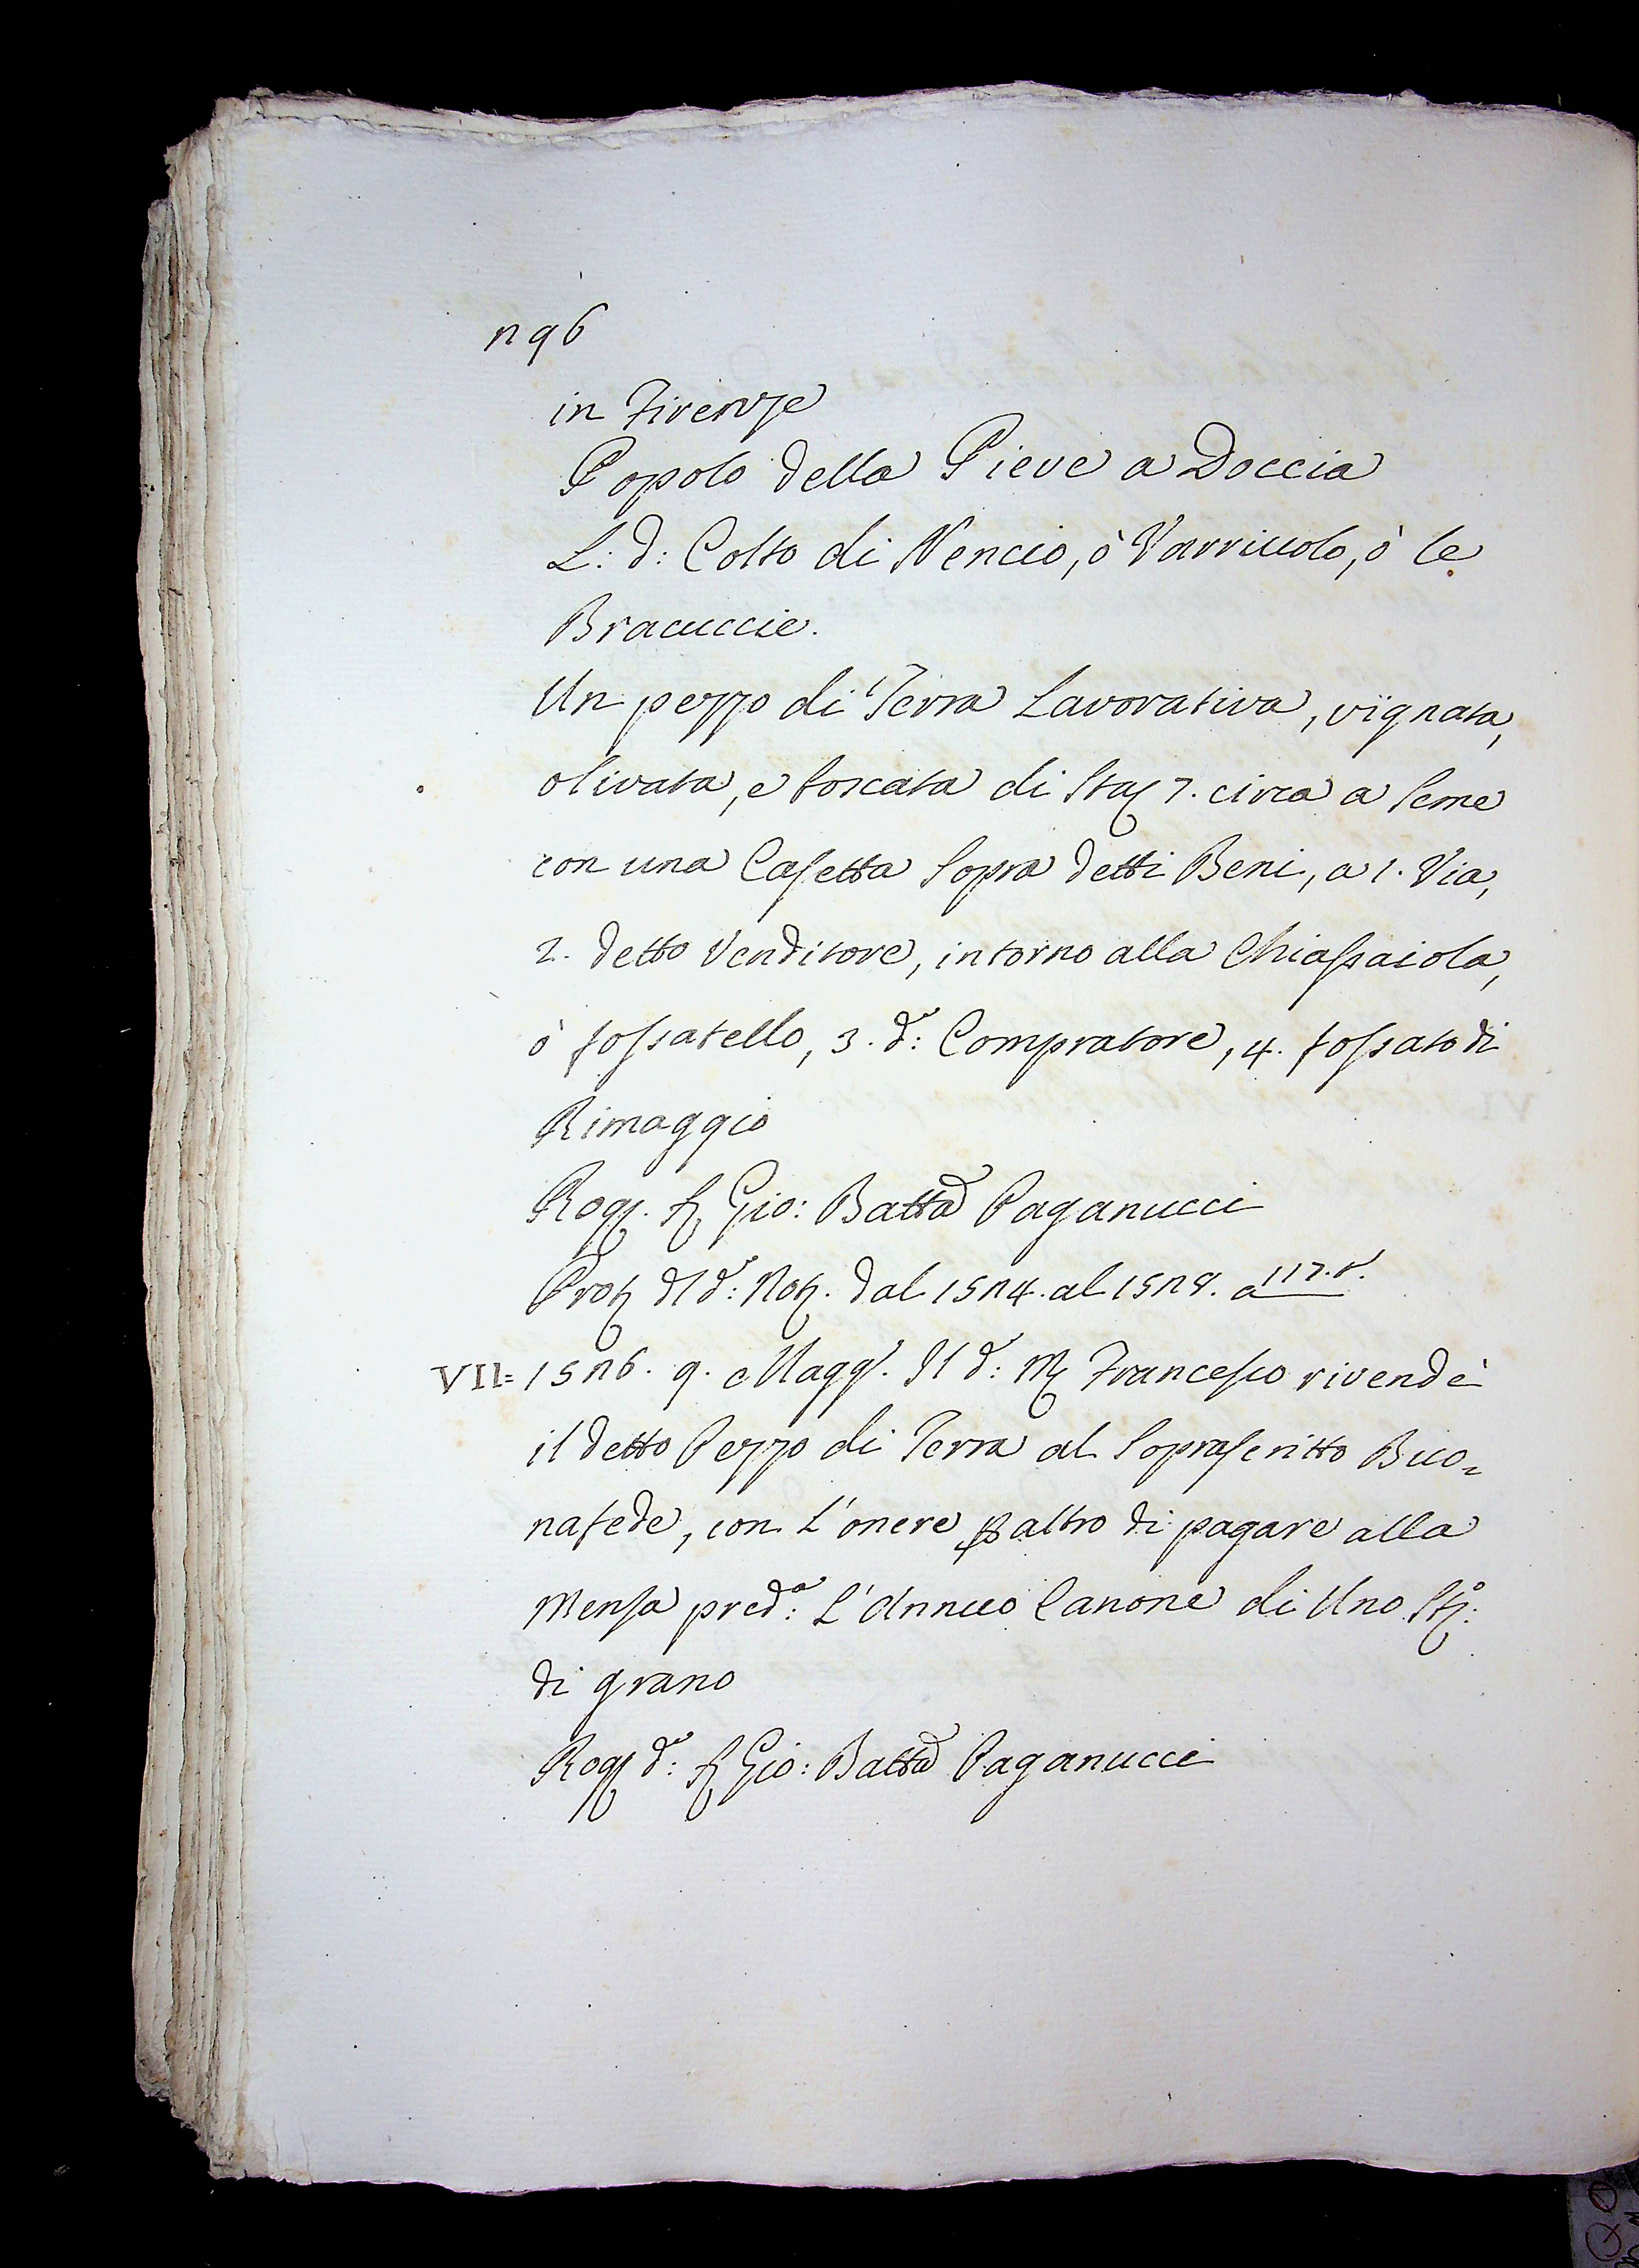 n96
in Firenze
Popolo della Pieve a Doccia
L: d: Colto di Nencio, ò Varriuolo, ò le
Bracuccie.
Un pezzo di Terra Lavorativa, vignata,
olivata, e boscata di Staj 7. circa a Seme
con una Casetta Sopra detti Beni, a 1. Via,
2. detto Venditore, intorno alla Chiassaiola,
ò fossatello, 3. d.º: Compratore, 4. fossato di
Rimaggio
Rog. S. Gio: Batta Paganucci
Prot. d'd.º: Not. dal 15n4. al 15n8. a 117. t.
VII= 15n6. 9. Magg. Il d.º: M. Francesco rivendè
il detto Pezzo di Terra al Soprascritto Buo=
nafede, con L'onere p altro di pagare alla
Mensa pred.ª: L'Annuo Canone di Uno St.º:
di grano
Rog. d.º: S. Gio: Batta Paganucci